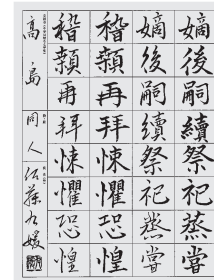 嫡後嗣續祭祀蒸嘗
嫡後嗣續祭祀蒸嘗
稽顙再拜悚懼恐惶
稽顙再拜悚懼恐惶
高島同人